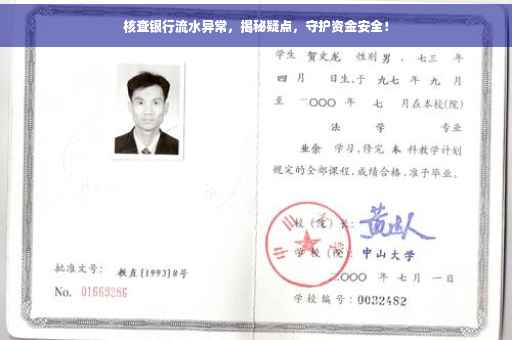 核查银行流水异常，揭秘疑点，守护资金安全！
学生 贺文龙 性别 男，七三 年
四 月 日生，于 九七 年 九 月
至 二〇〇〇 年 七 月在本校(院)
法 学 专业
业余 学习，修完 本 科教学计划
规定的全部课程，成绩合格，准予毕业。
校(院)长：
学校(院)：中山大学
二〇〇〇 年 七 月 一 日
学校编号：0032482
批准文号：教直[1993]8号
No. 01669286